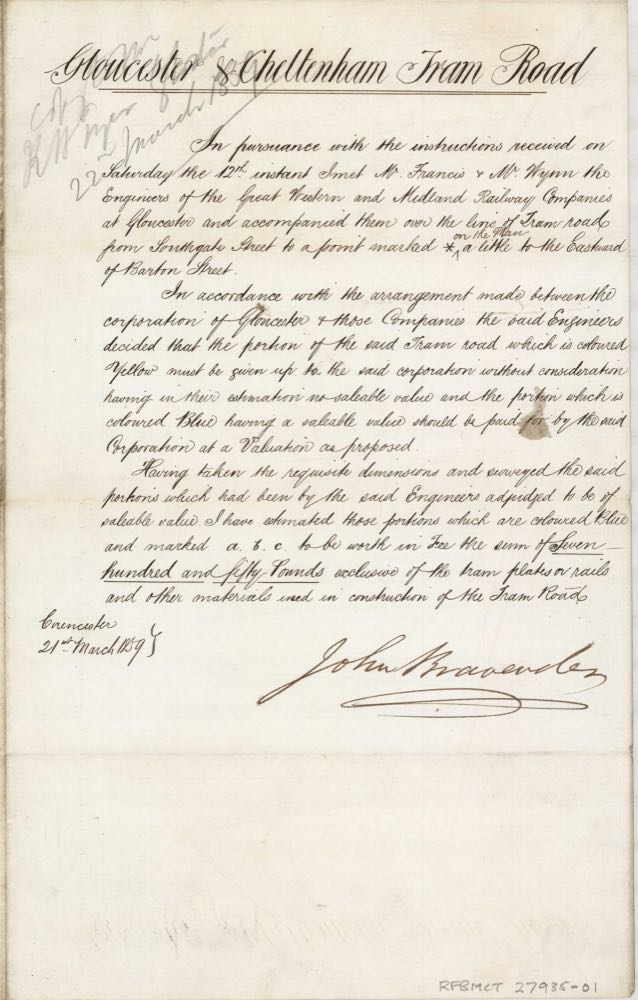 Gloucester & Cheltenham Tram Road
Copy
22nd March 1859
In pursuance with the instructions received on
Saturday the 12th instant I met Mr. Francis & Mr. Wynn the
Engineers of the Great Western and Midland Railway Companies
at Gloucester and accompanied them over the line of Tram road
from Southgate Street to a point marked * on the Plan a little to the Eastward
of Barton Street.
In accordance with the arrangement made between the
corporation of Gloucester & those Companies the said Engineers
decided that the portion of the said Tram road which is coloured
Yellow must be given up to the said corporation without consideration
having in their estimation no saleable value and the portion which is
coloured Blue having a saleable value should be paid for by the said
Corporation at a Valuation as proposed.
Having taken the requisite dimensions and surveyed the said
portions which had been by the said Engineers adjudged to be of
saleable value I have estimated those portions which are coloured Blue
and marked a. b. c. to be worth in Fee the sum of Seven
hundred and fifty Pounds exclusive of the tram plates or rails
and other materials used in construction of the Tram Road
Cirencester
21st March 1859
John Bravender
RFBMCT 27935-01